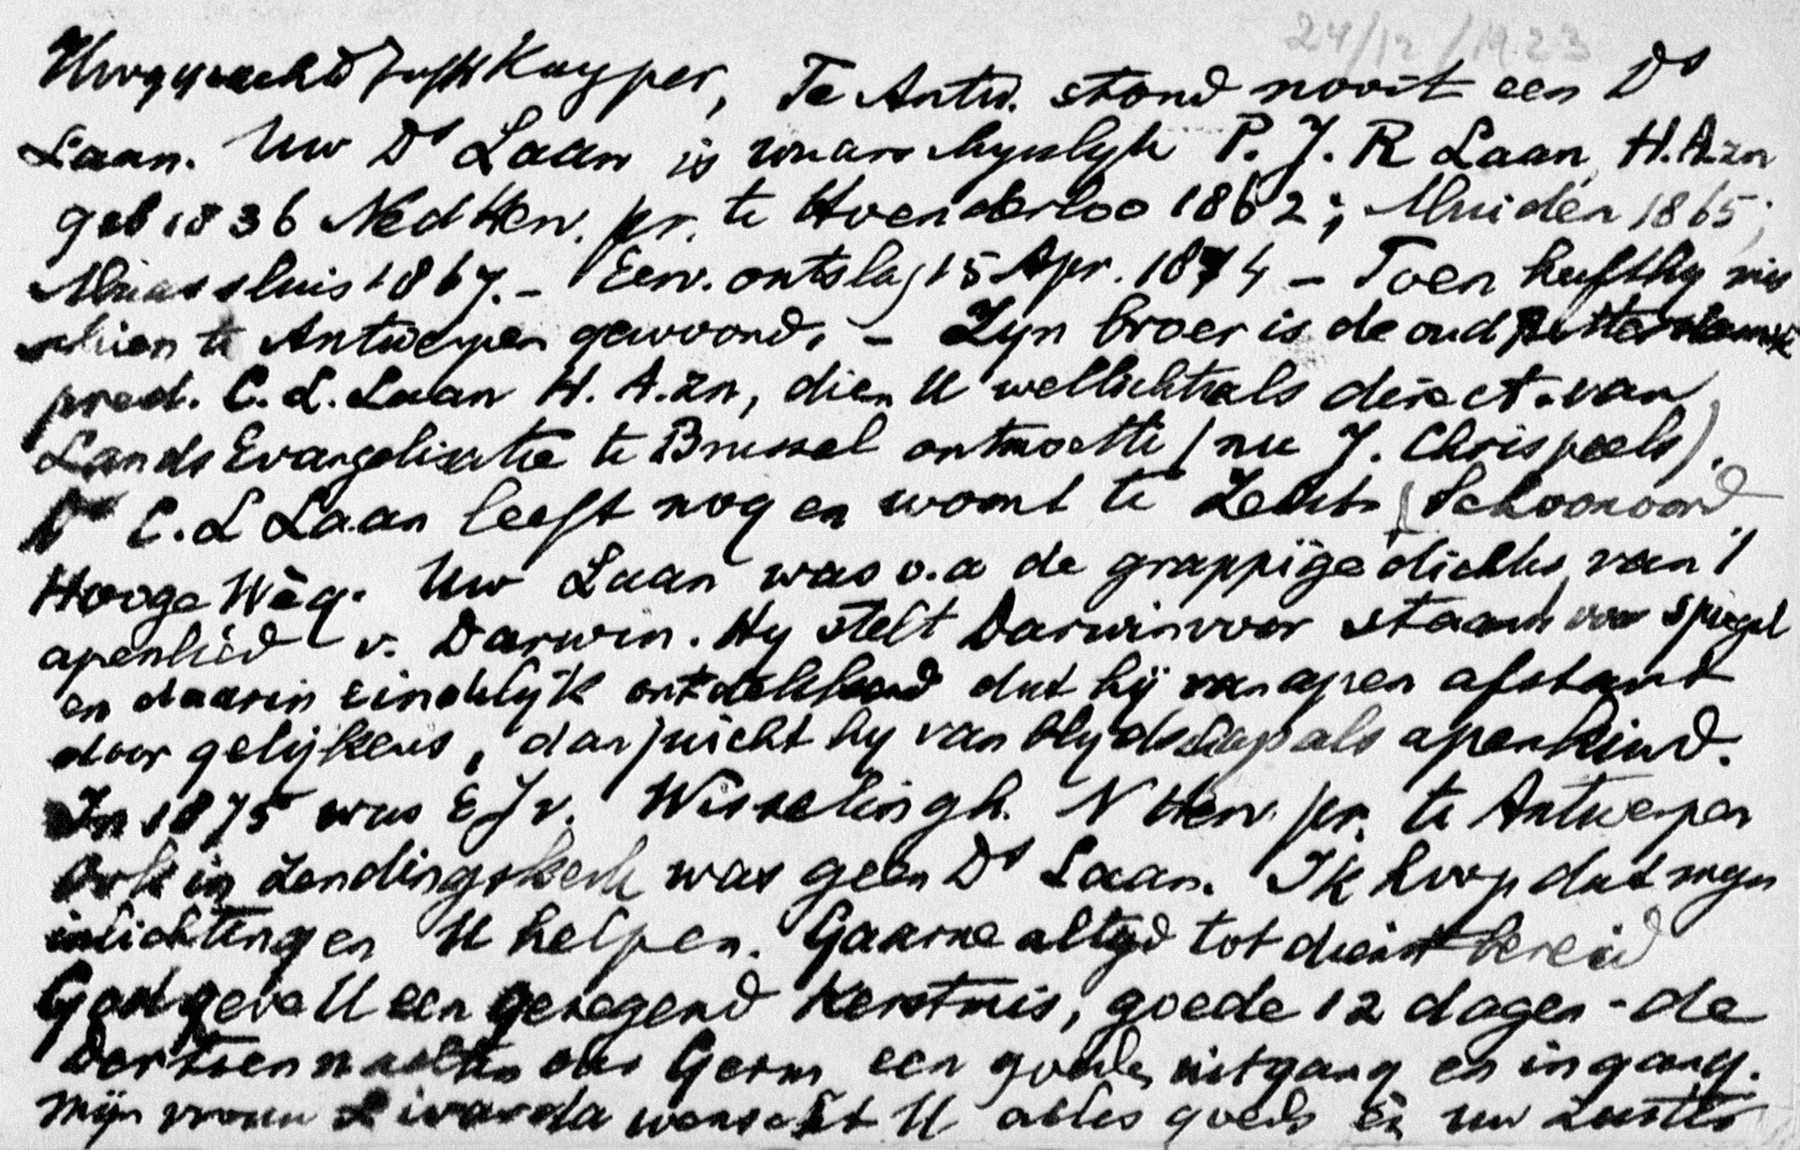 24/12/1923
Hooggeachte Jufr Kuyper, Te Antw. stond nooit een Ds
Laan. Uw Ds Laan is waarschynlyk P. J. R Laan, H.A.zn
geb 1836 Ned Herv. pr. te Hoenderloo 1862; Muiden 1865;
Maassluis 1867. - Eerv. ontslag 15 Apr. 1874 - Toen heeft hy mis
schien te Antwerpen gewoond. - Zyn broer is de oud Rotterdamse
pred. C. L. Laan H. A. zn, dien U wellicht als direct. van
Lands Evangelisatie te Brussel ontmoette (nu J. Chrispeels).
Ds C. L Laan leeft nog en woont te Zeist (Schoonoord
Hooge Weg. Uw Laan was o.a de grappige dichter van 't
apenlied v. Darwin. Hy stelt Darwin voor staande voor spiegel
en daarin eindelyk ontdekkend dat hij van apen afstamt
door gelijkenis, dan juicht hy van blydschap als apenkind.
In 1875 was E J v. Wisselingh. N Herv. pr. te Antwerpen
Ook in Zendingskerk was geen Ds Laan. Ik hoop dat myn
inlichtingen U helpen. Gaarne altyd tot dienst bereid
God geve U een gezegend Kerstmis, goede 12 dagen - de
Dertien nachten der Germ een goede uitgang en ingang.
Mijn vrouw wenscht U alles goeds en uw zuster